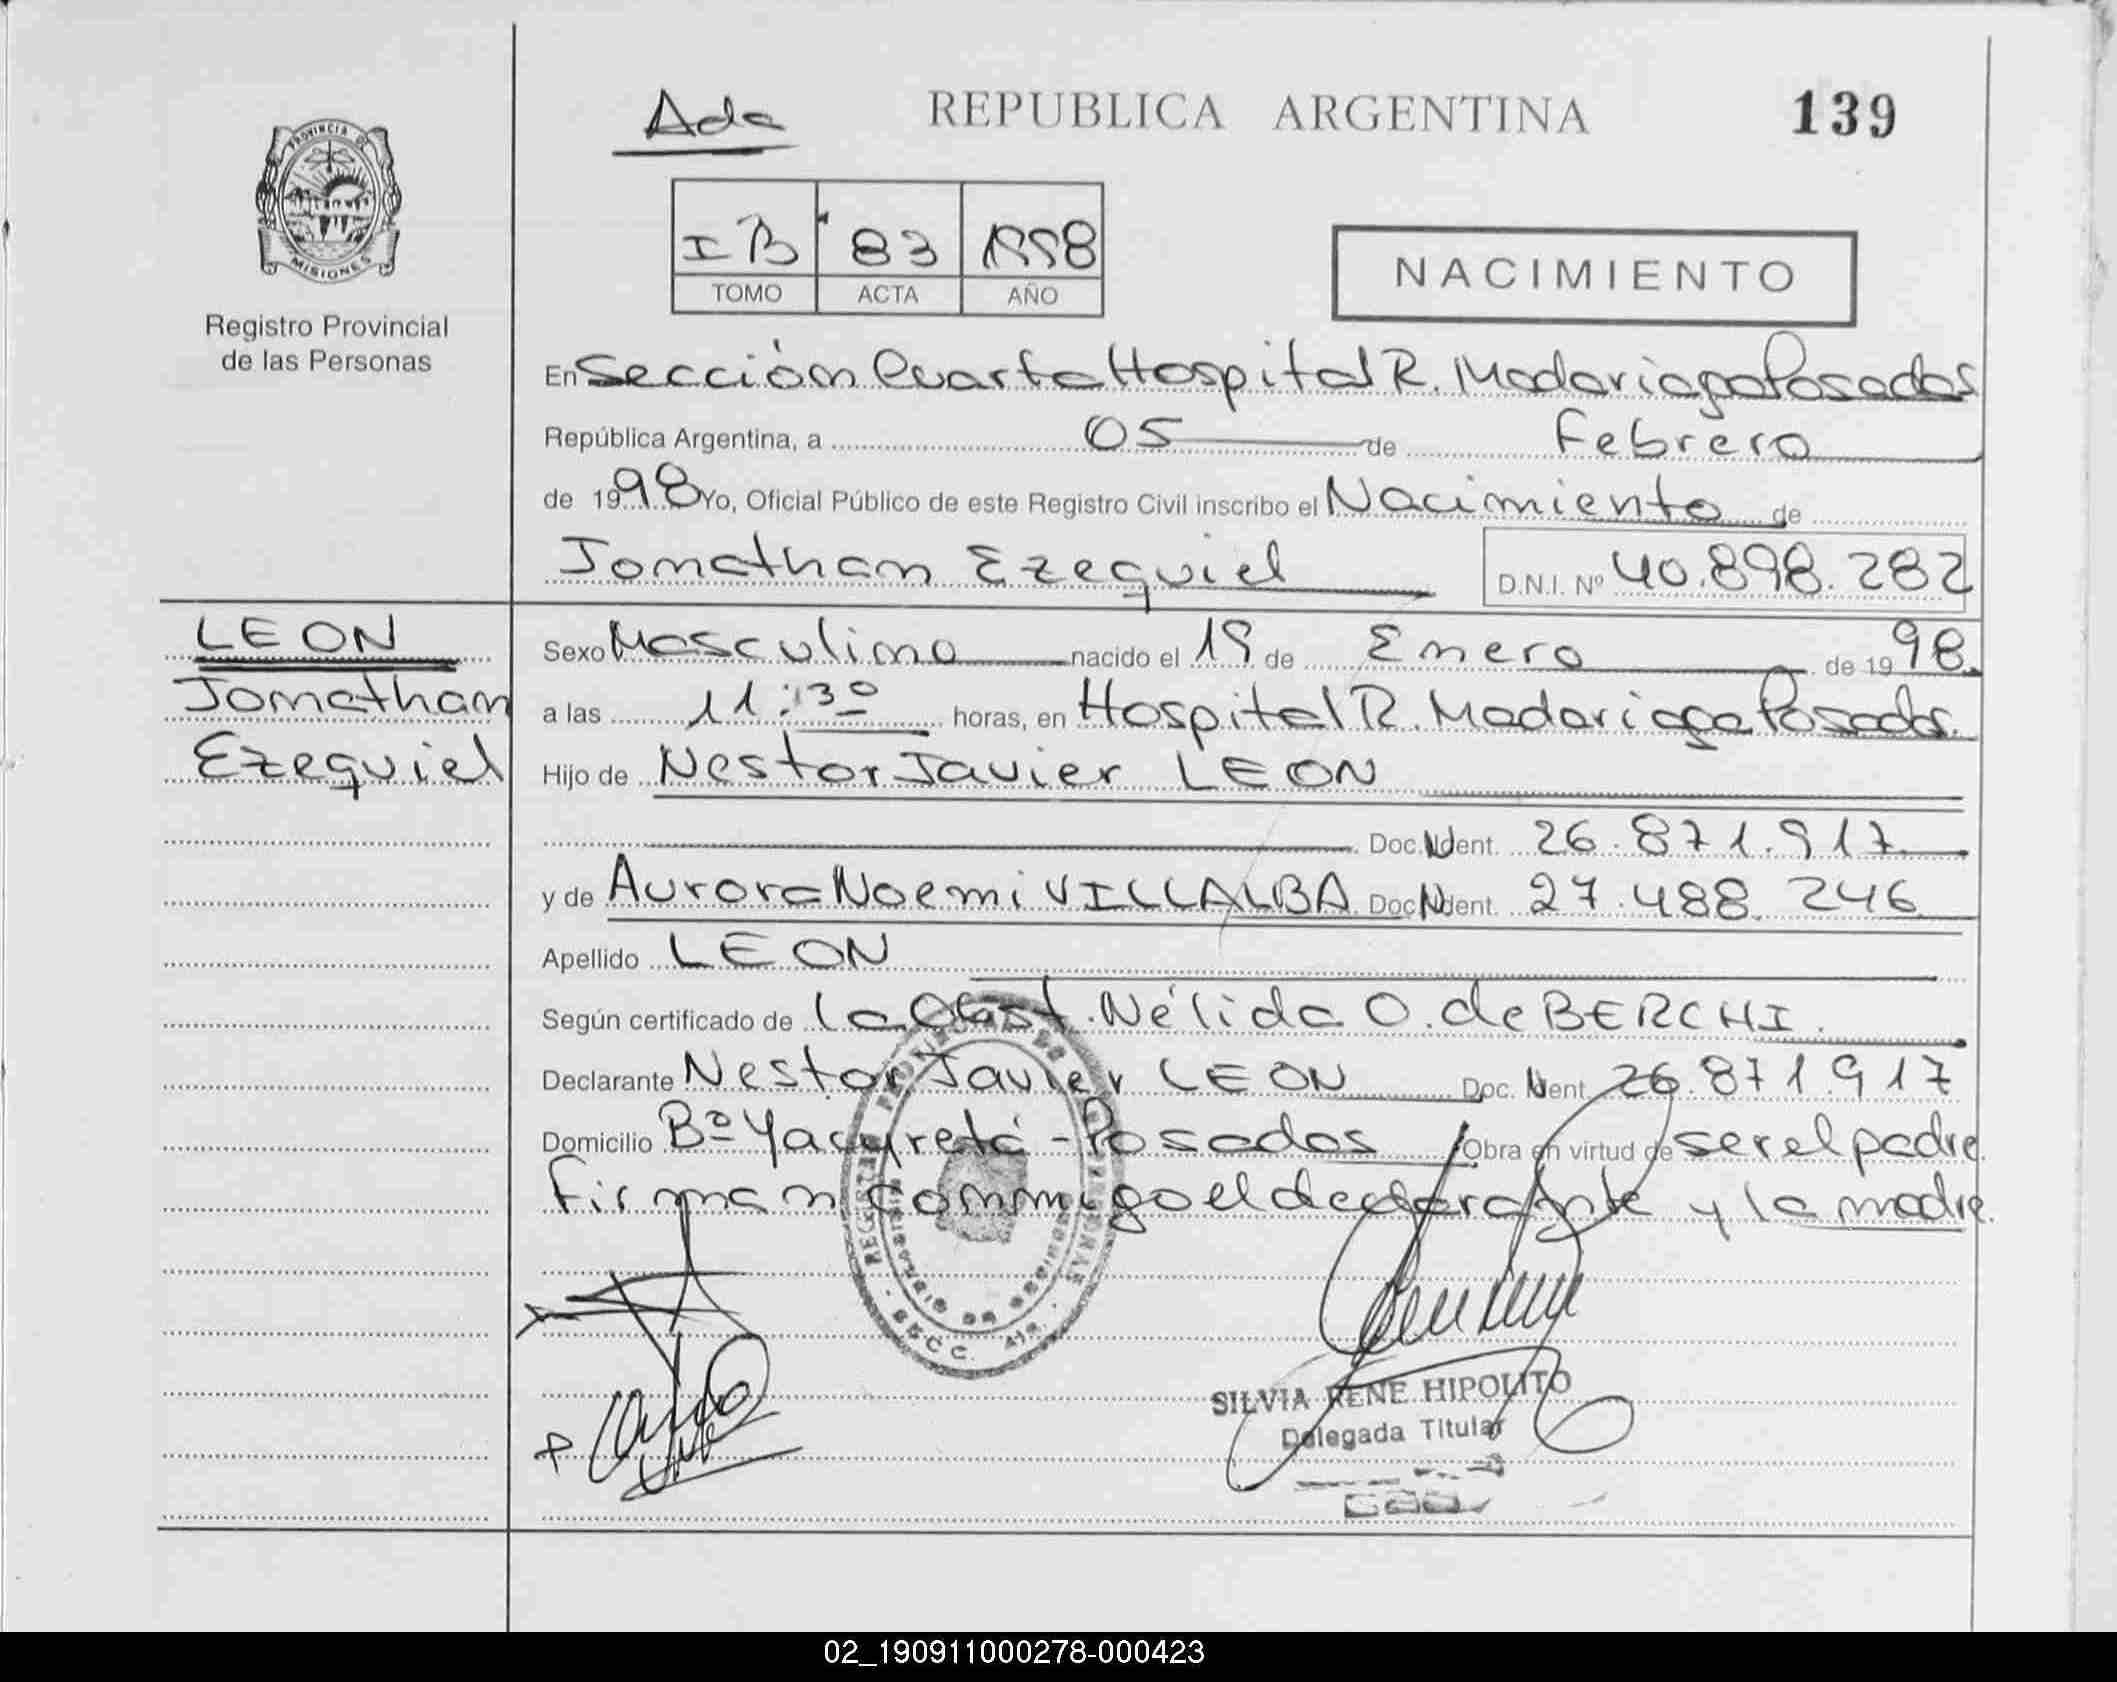 PROVINCIA DE
MISIONES
Registro Provincial
de las Personas
Ada
REPUBLICA ARGENTINA
139
I B 83 1998
TOMO ACTA AÑO
NACIMIENTO
En Sección Cuarta Hospital R. Madariaga Posadas
República Argentina, a 05 de Febrero
de 1998 Yo, Oficial Público de este Registro Civil inscribo el Nacimiento de
Jonathan Ezequiel D.N.I. Nº 40.898.282
LEON
Jonathan
Ezequiel
Sexo Masculino nacido el 19 de Enero de 1998.
a las 11:30 horas, en Hospital R. Madariaga Posadas.
Hijo de Nestor Javier LEON
Doc. N Ident. 26.871.917
y de Aurora Noemi VILLALBA Doc. N Ident. 27.488.246
Apellido LEON
Según certificado de la Obst. Nélida O. de BERCHI.
Declarante Nestor Javier LEON Doc. N Ident. 26.871.917
Domicilio Bº Yacyretá - Posadas Obra en virtud de ser el padre
Firman conmigo el declarante y la madre.
SILVIA RENE HIPOLITO
Delegada Titular
02_190911000278-000423